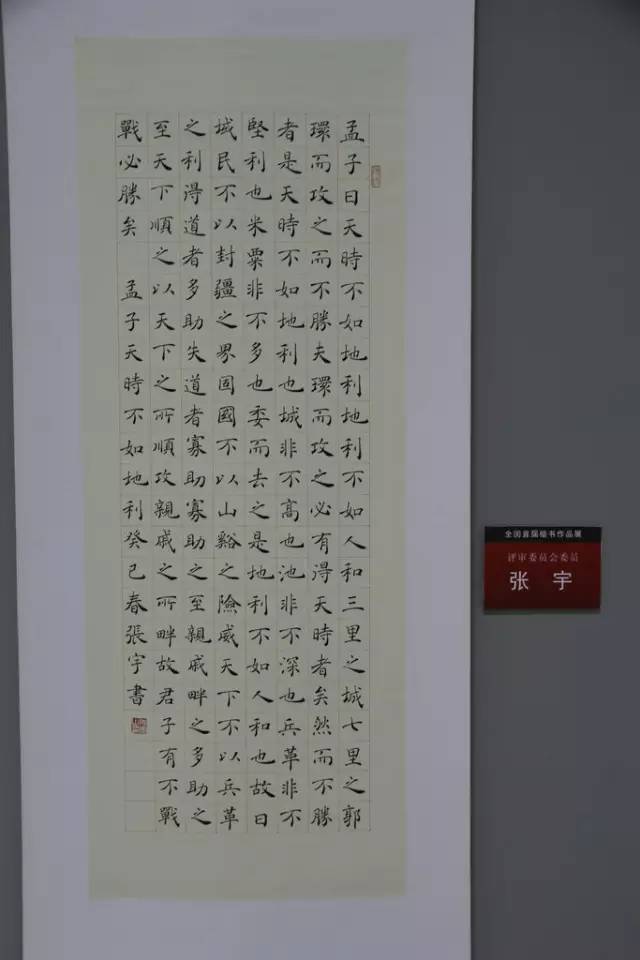 孟子曰天時不如地利地利不如人和三里之城七里之郭
環而攻之而不勝夫環而攻之必有得天時者矣然而不勝
者是天時不如地利也城非不高也池非不深也兵革非不
堅利也米粟非不多也委而去之是地利不如人和也故曰
域民不以封疆之界固國不以山谿之險威天下不以兵革
之利得道者多助失道者寡助寡助之至親戚畔之多助之
至天下順之以天下之所順攻親戚之所畔故君子有不戰
戰必勝矣 孟子天時不如地利癸巳春張宇書
全国首届楷书作品展
评审委员会委员
张 宇